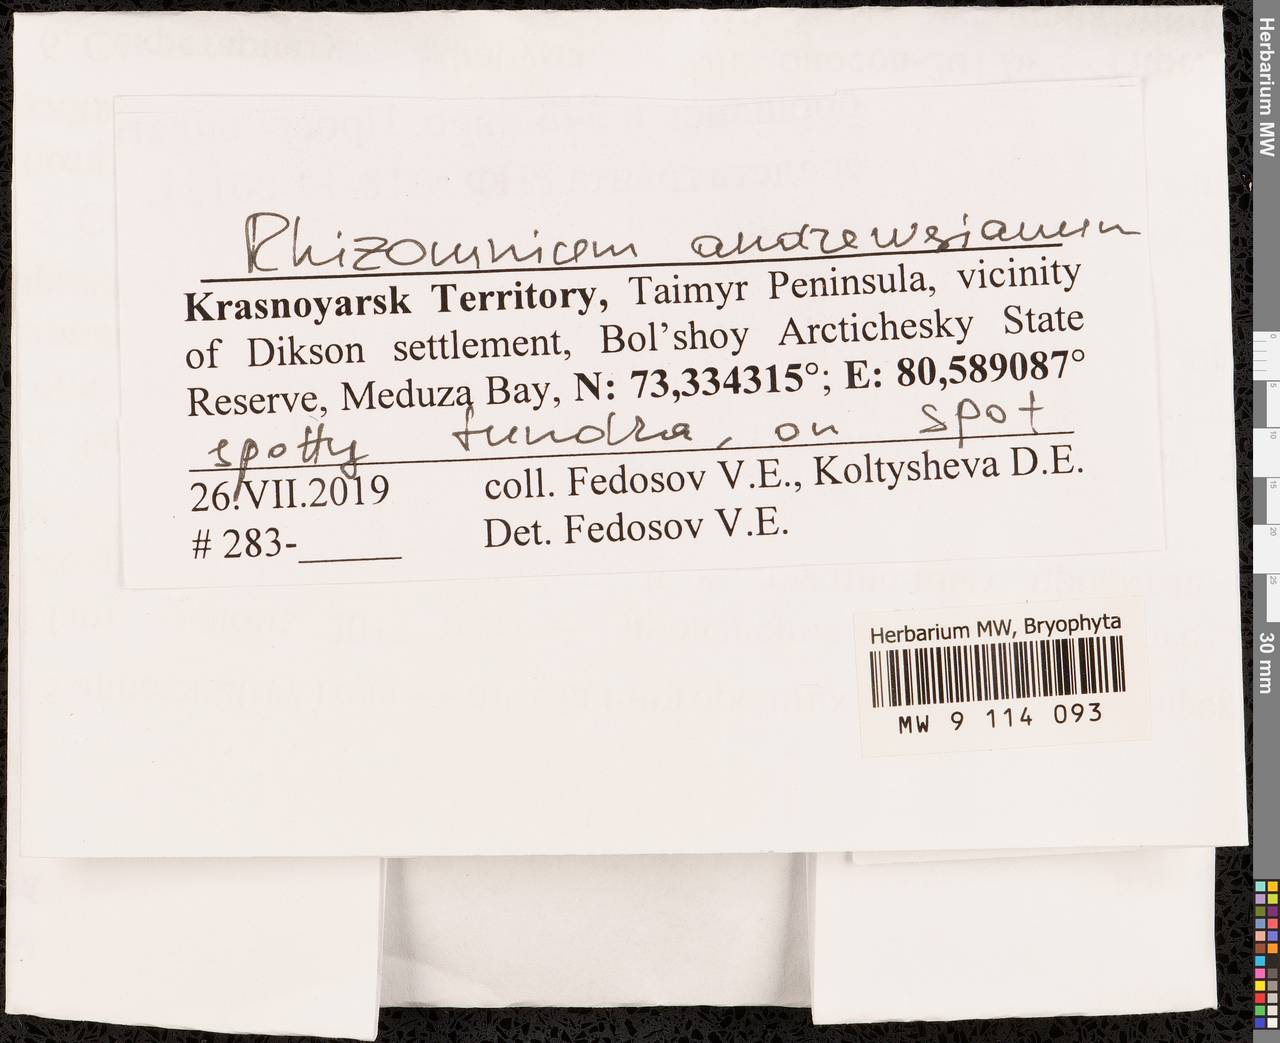 Rhizomnium andrewsianum
Krasnoyarsk Territory, Taimyr Peninsula, vicinity
of Dikson settlement, Bol'shoy Arctichesky State
Reserve, Meduza Bay, N: 73,334315°; E: 80,589087°
spotty tundra, on spot
26.VII.2019 coll. Fedosov V.E., Koltysheva D.E.
# 283-_____ Det. Fedosov V.E.
Herbarium MW, Bryophyta
MW 9 114 093
Herbarium MW
0
5
10
15
20
25
30 mm